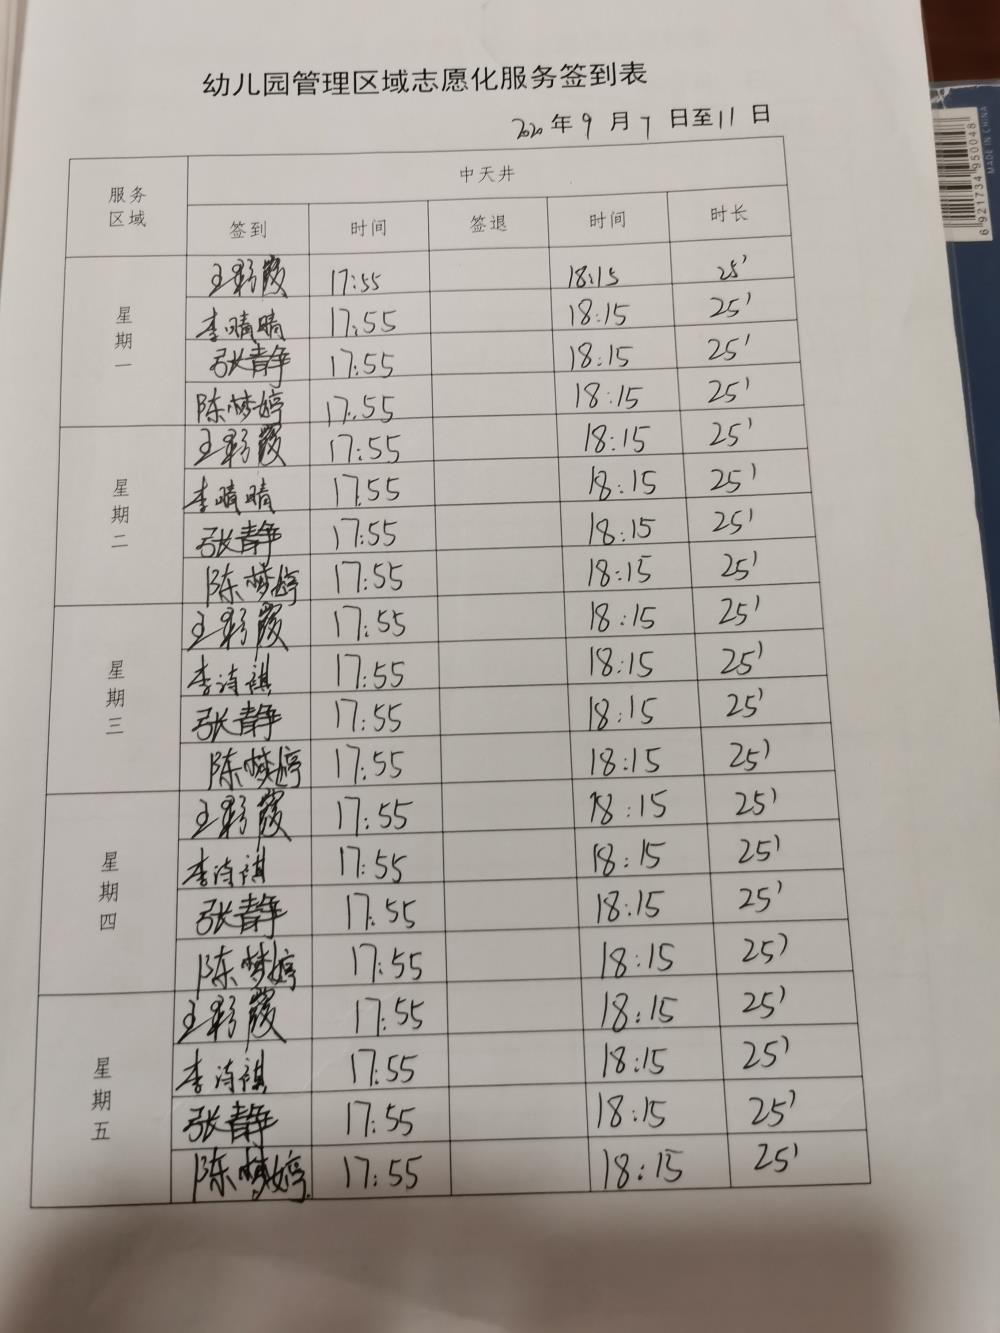 幼儿园管理区域志愿化服务签到表
2020年9月7日至11日
服务区域 中天井
签到 时间 签退 时间 时长
星期一
王彩霞 17:55 18:15 25'
李晴晴 17:55 18:15 25'
张静 17:55 18:15 25'
陈梦婷 17:55 18:15 25'
星期二
王彩霞 17:55 18:15 25'
李晴晴 17:55 18:15 25'
张静 17:55 18:15 25'
陈梦婷 17:55 18:15 25'
星期三
王彩霞 17:55 18:15 25'
李诗祺 17:55 18:15 25'
张静 17:55 18:15 25'
陈梦婷 17:55 18:15 25'
星期四
王彩霞 17:55 18:15 25'
李诗祺 17:55 18:15 25'
张静 17:55 18:15 25'
陈梦婷 17:55 18:15 25'
星期五
王彩霞 17:55 18:15 25'
李诗祺 17:55 18:15 25'
张静 17:55 18:15 25'
陈梦婷 17:55 18:15 25'
6 921734 950048
MADE IN CHINA